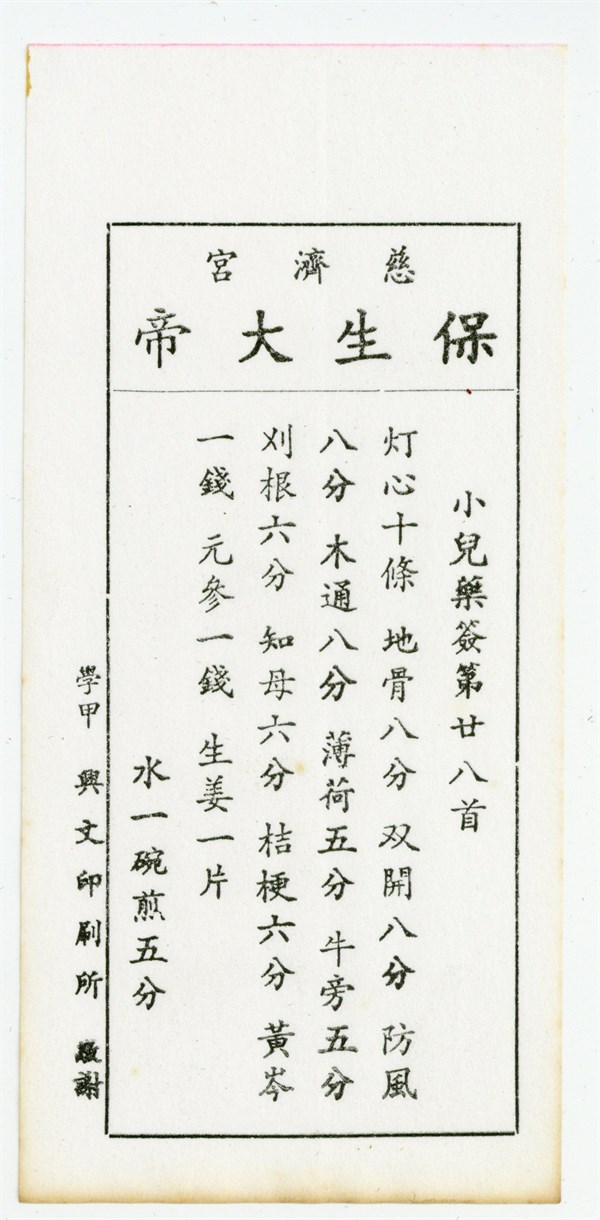 慈濟宮
保生大帝
小兒藥簽第廿八首
灯心十條 地骨八分 双開八分 防風
八分 木通八分 薄荷五分 牛旁五分
刈根六分 知母六分 桔梗六分 黃岑
一錢 元參一錢 生姜一片
水一碗煎五分
學甲 興文印刷所 敬謝